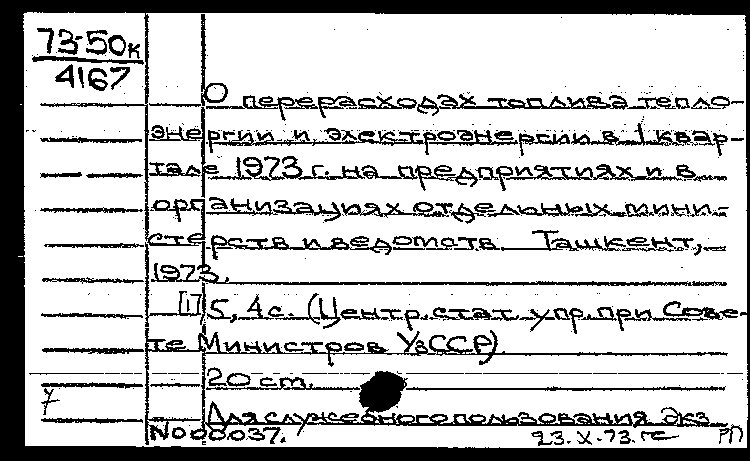 73-50к
4167
О перерасходах топлива тепло-
энергии и электроэнергии в I квар-
тале 1973 г. на предприятиях и в
организациях отдельных мини-
стерств и ведомств. Ташкент,
1973.
[1] 5, 4 с. (Центр. стат. упр. при Сове-
те Министров УзССР)
20 см.
Для служебного пользования Экз.
№ 000037.
23.X.73.
РП